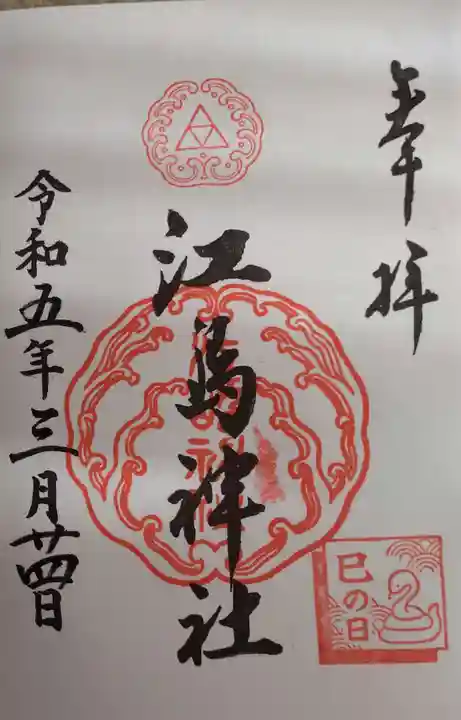 奉拝
江島神社
巳の日
令和五年三月廿四日